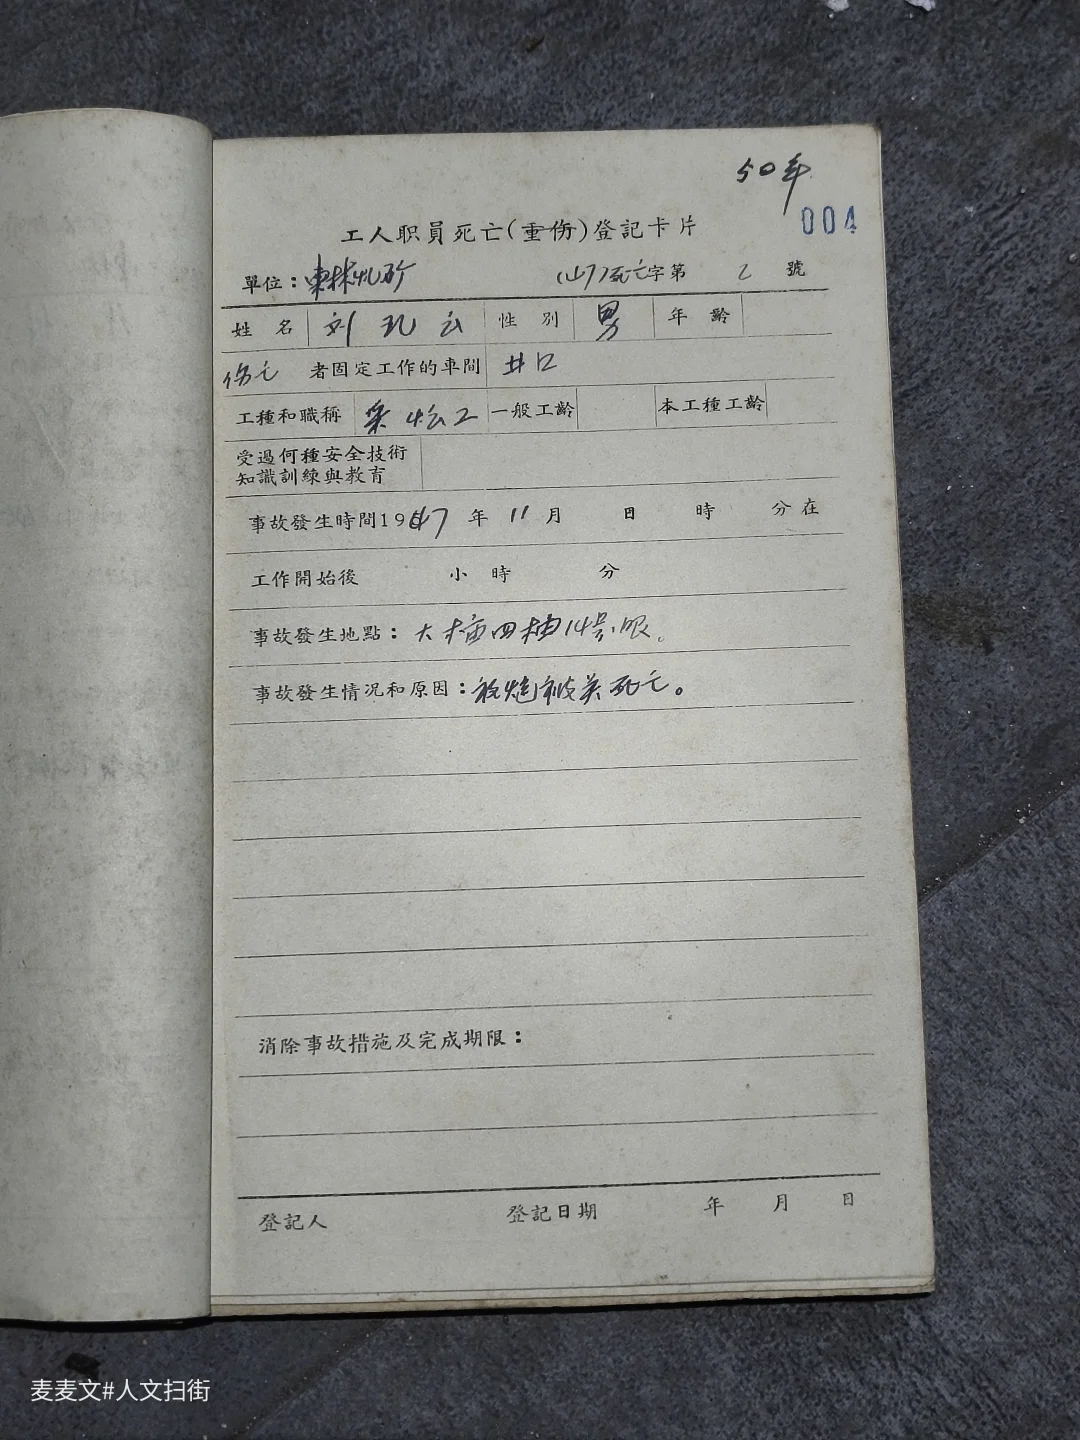 50年
004
工人职員死亡(重伤)登記卡片
單位:東林 字第 2 號
姓名 刘孔云 性別 男 年齡
伤亡 者固定工作的車間 井口
工種和職稱 采 工 一般工齡 本工種工齡
受過何種安全技術
知識訓練與教育
事故發生時間1947年11月 日 時 分在
工作開始後 小時 分
事故發生地點:大 四 14号眼。
事故發生情况和原因:放炮被 死亡。
消除事故措施及完成期限:
登記人 登記日期 年 月 日
麦麦文#人文扫街